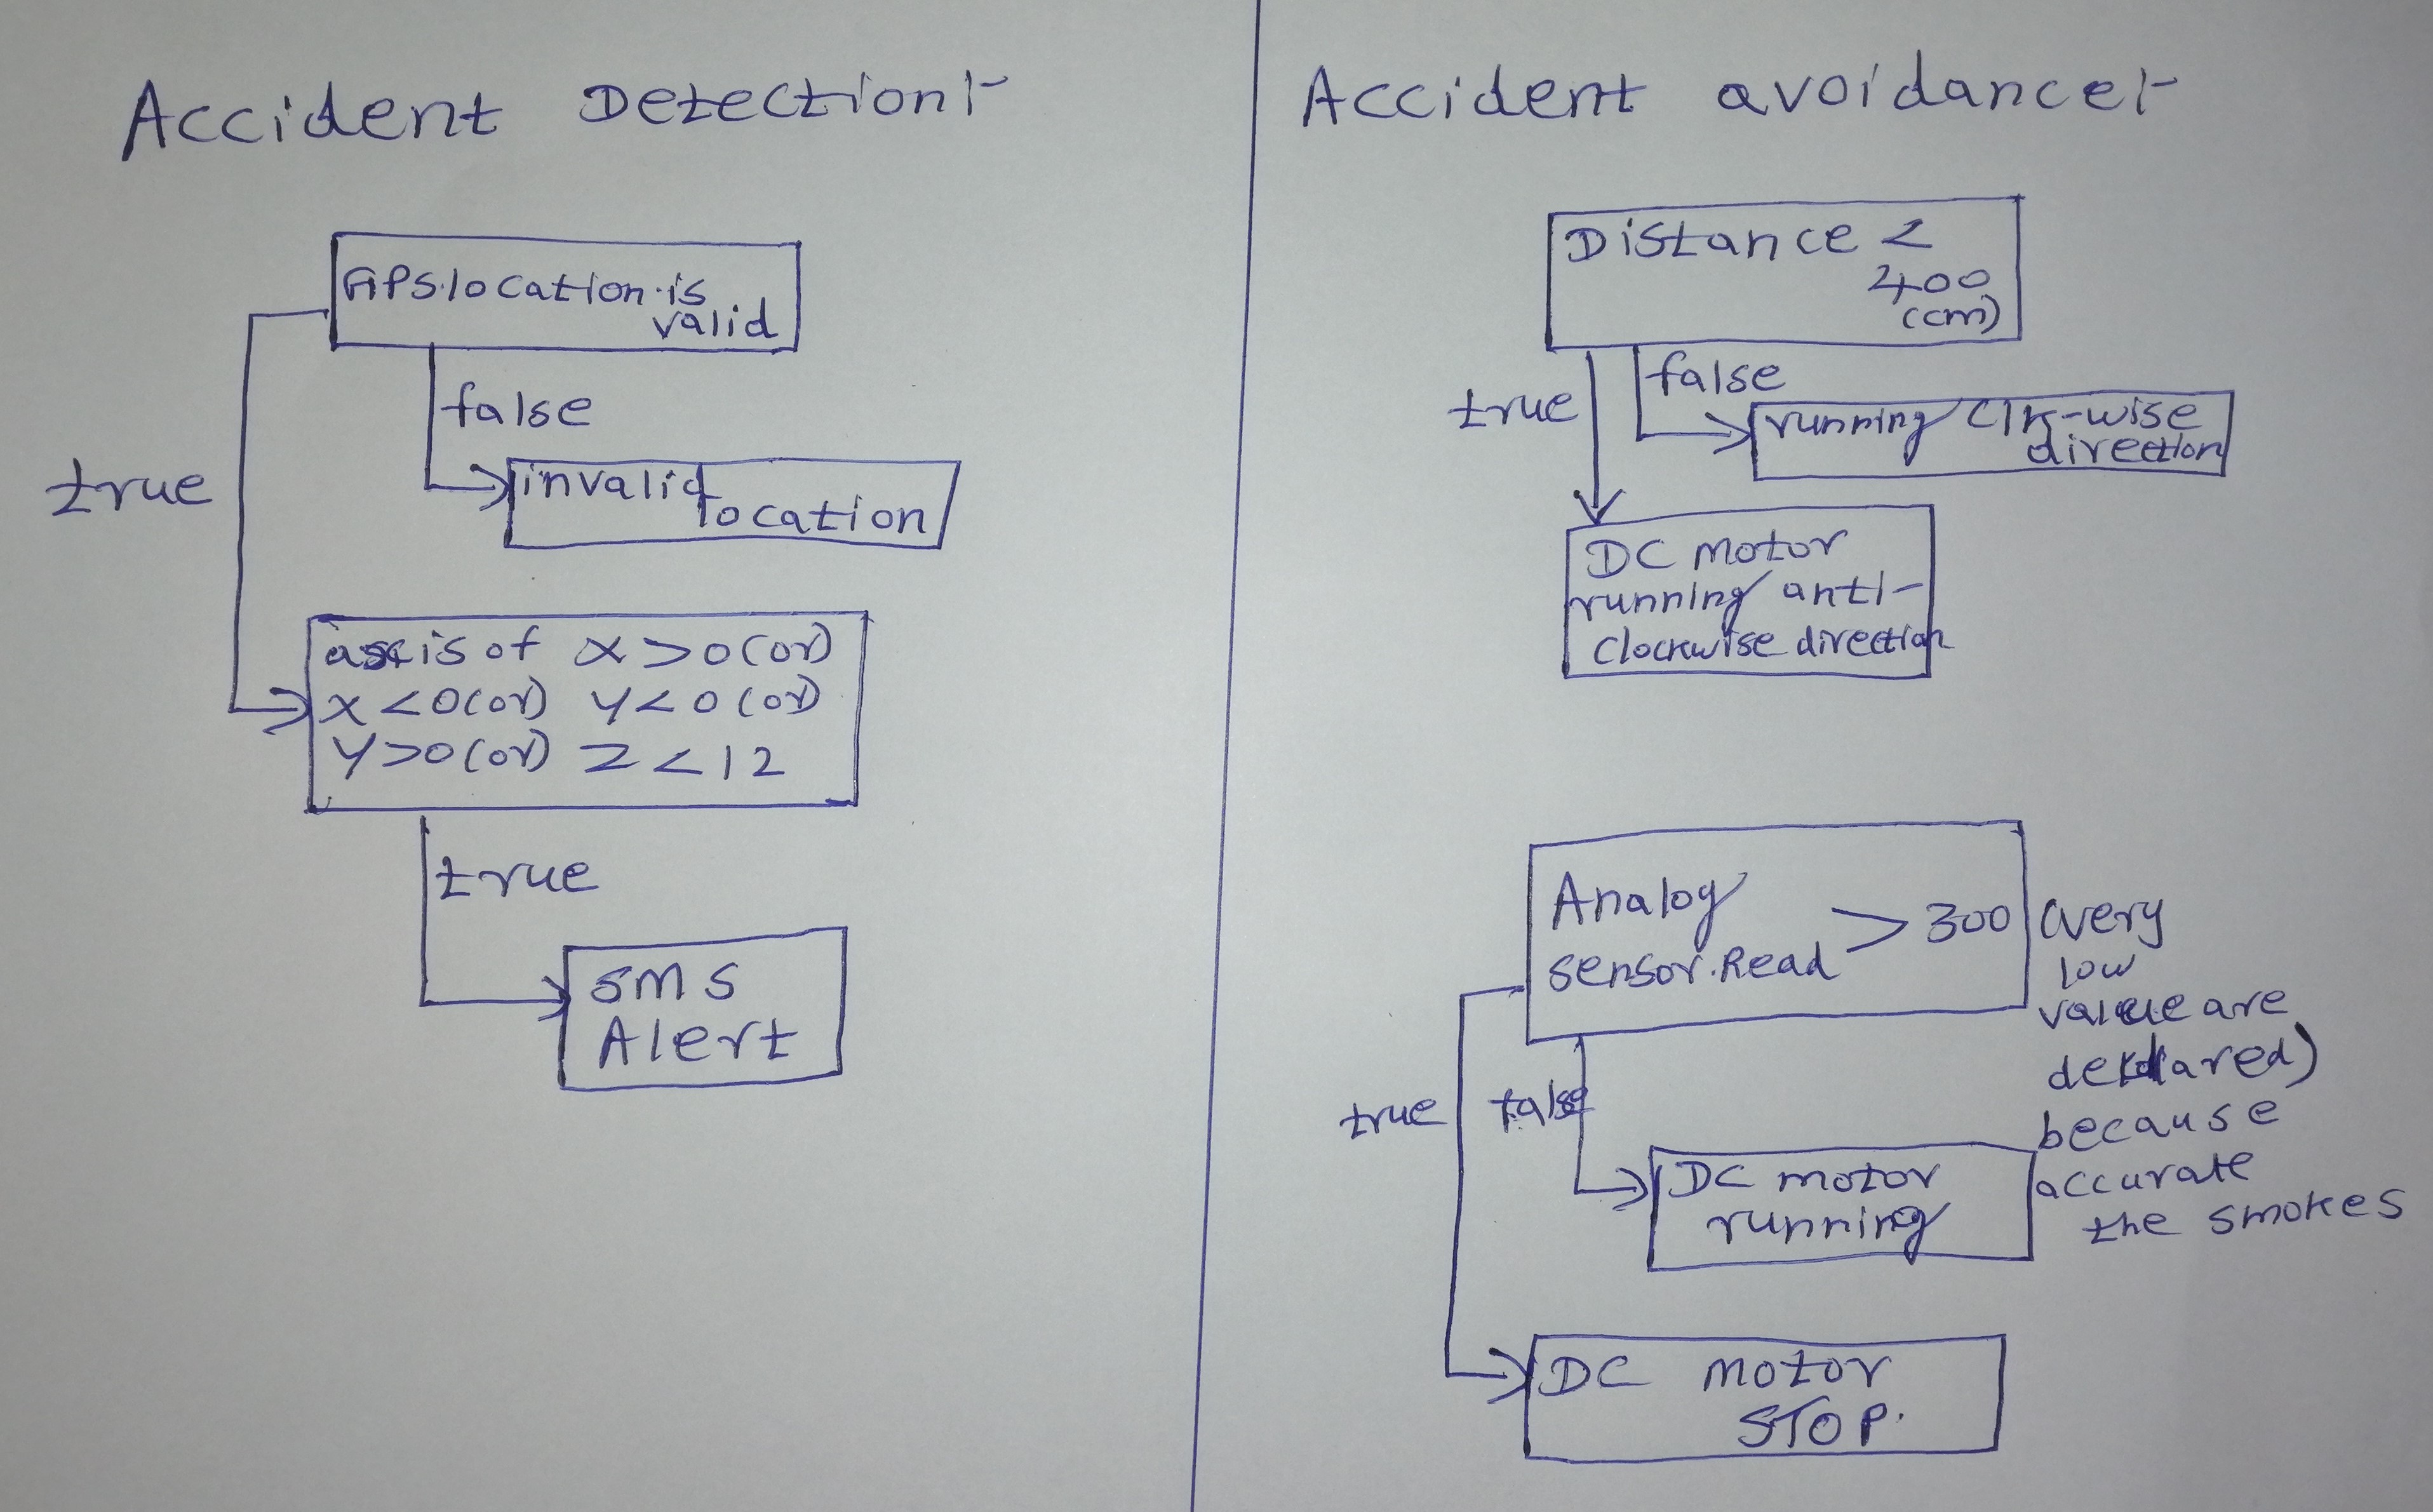 Accident Detection:-
GPS.location.is
valid
false
true
invalid
location
axis of x>0(or)
x<0(or) y<0(or)
y>0(or) z<12
true
SMS
Alert
Accident avoidance:-
Distance <
400
(cm)
true
false
running clk-wise
direction
DC motor
running anti-
clockwise direction
Analog
sensor.Read > 300
(very
low
value are
declared)
because
accurate
the smokes
true
false
DC motor
running
DC motor
STOP.